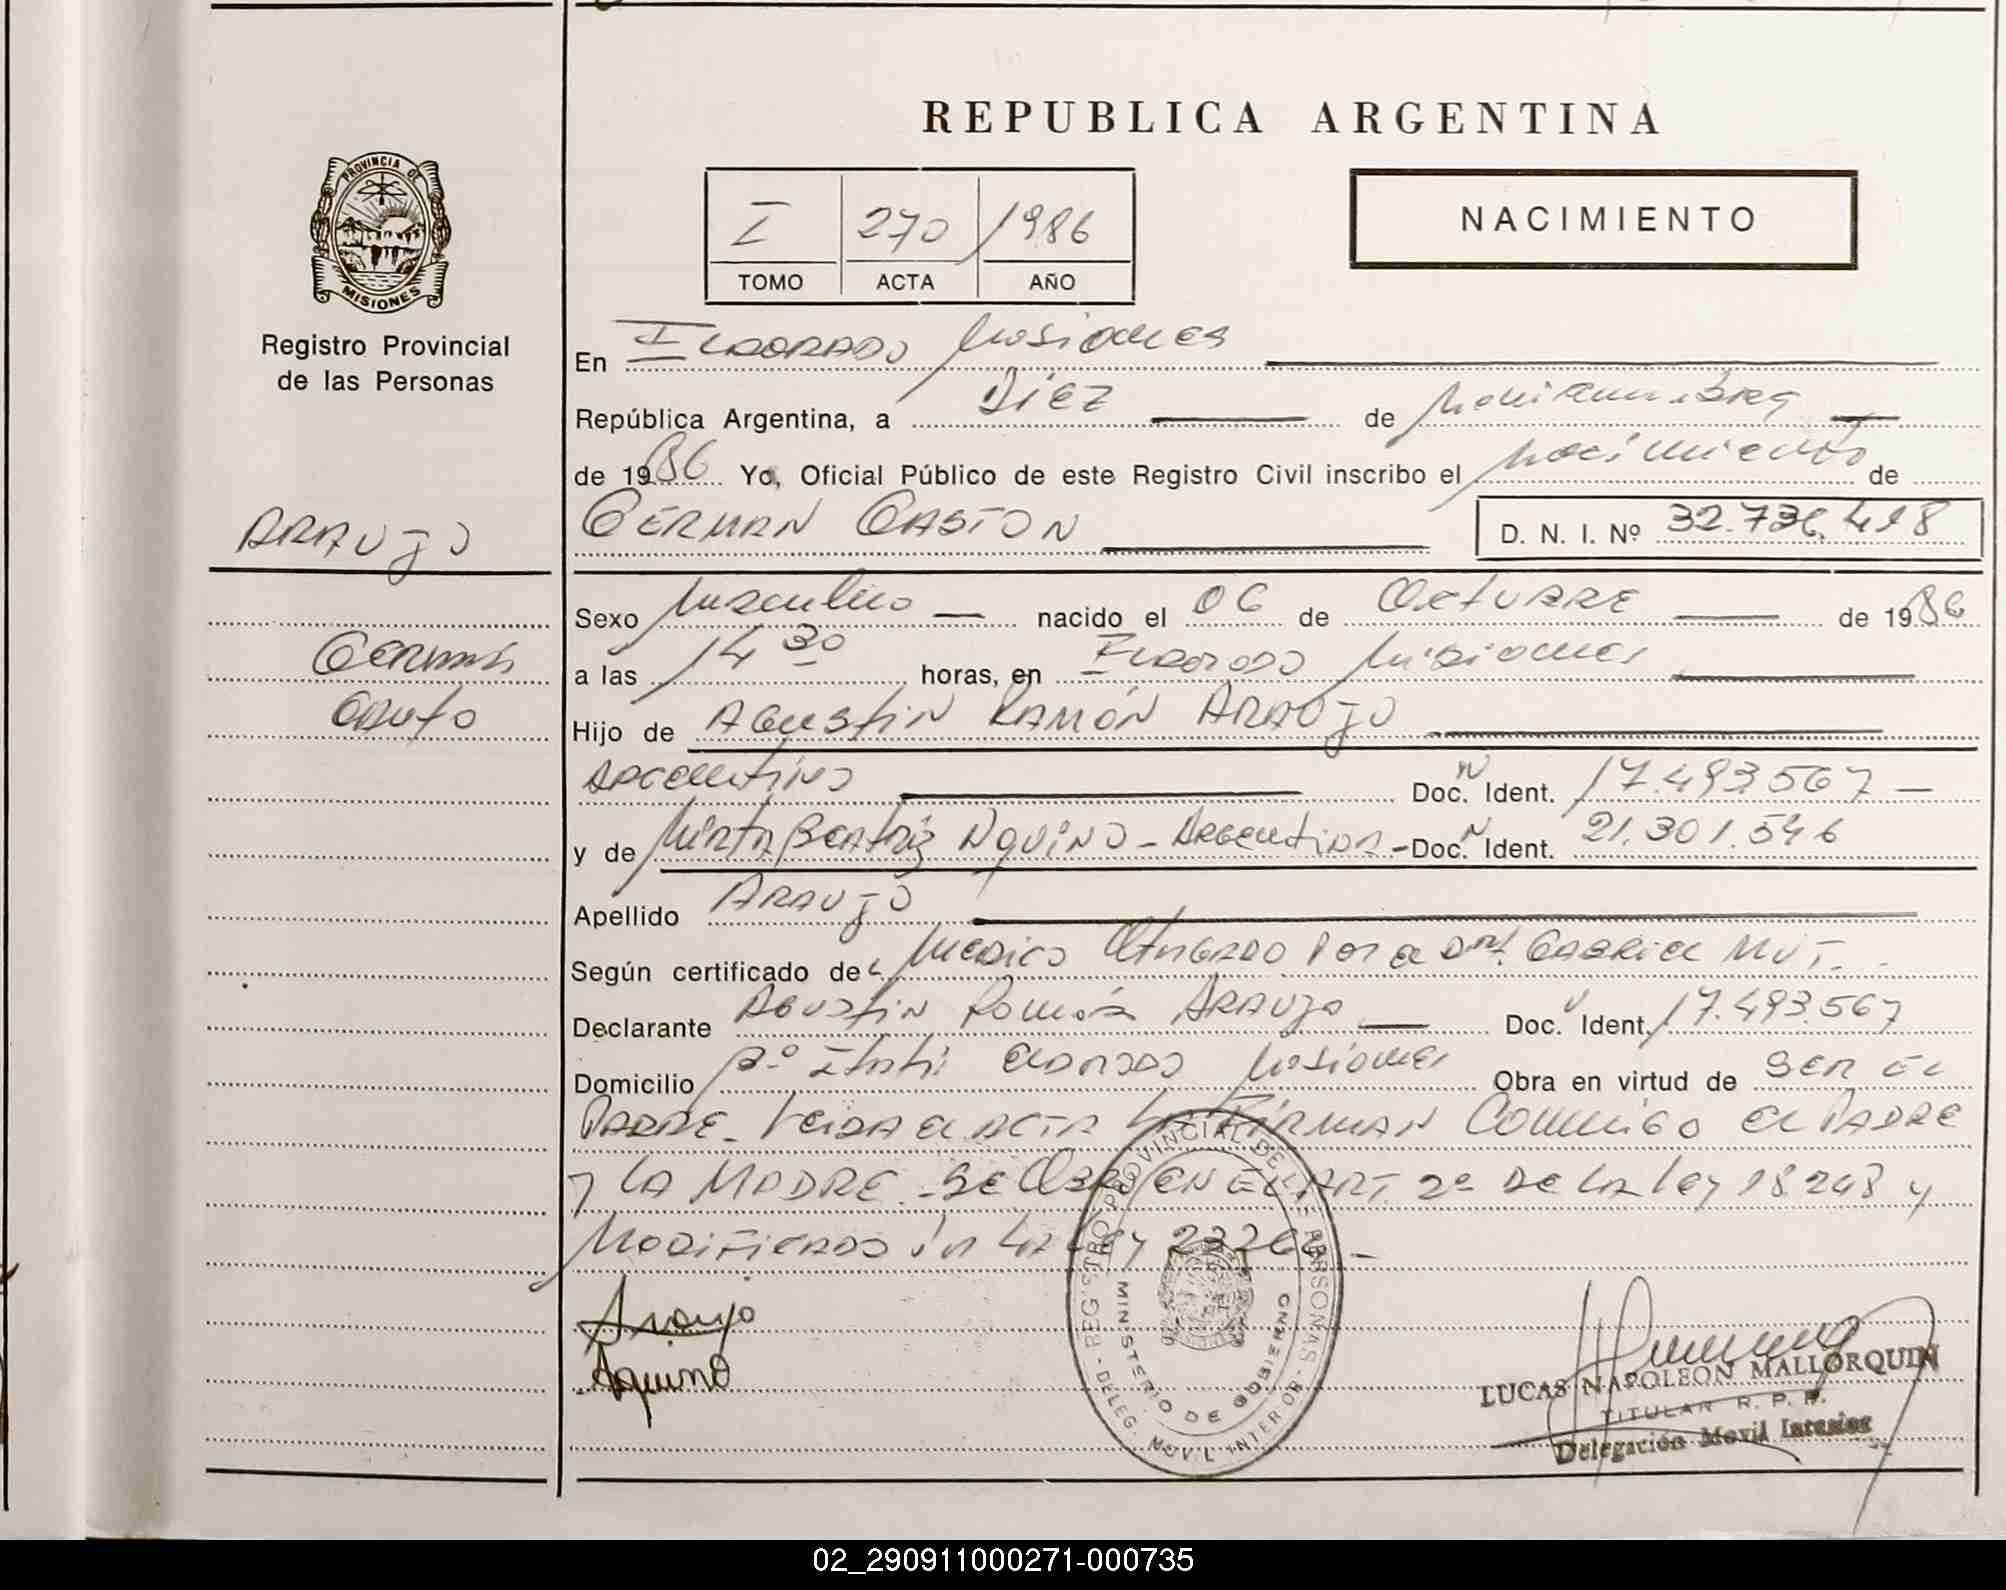 REPUBLICA ARGENTINA
PROVINCIA DE
MISIONES
Registro Provincial
de las Personas
I 270 1986
TOMO ACTA AÑO
NACIMIENTO
En ELDORADO Misiones
República Argentina, a Diez de Noviembre
de 1986 Yo, Oficial Público de este Registro Civil inscribo el Nacimiento de
ARAUJO
GERMAN GASTON D. N. I. Nº 32.736.418
Sexo Masculino nacido el 06 de OCTUBRE de 1986
GERMAN
a las 14 30 horas, en ELDORADO Misiones
Hijo de AGUSTIN RAMÓN ARAUJO
Argentino Doc. N Ident. 17.493.567
y de Mirta Beatriz Aquino - Argentina - Doc. N Ident. 21.301.546
Apellido ARAUJO
Según certificado de Medico Otorgado Por el GABRIEL MUT.
Declarante AGUSTIN Ramón ARAUJO Doc. Ident. 17.493.567
Domicilio Eldorado Misiones Obra en virtud de SER EL
PADRE. Leida el ACTA LA FIRMAN Conmigo el PADRE
y LA MADRE. SE EN EL ART. 2º DE La Ley 18248 y
Modificado La Ley
Araujo
Aquino
REGISTRO PROVINCIAL DE LAS PERSONAS
MINISTERIO DE GOBIERNO
DELEG. MOVIL INTERIOR
LUCAS NAPOLEON MALLORQUIN
TITULAR R. P. P.
Delegación Movil Interior
02_290911000271-000735